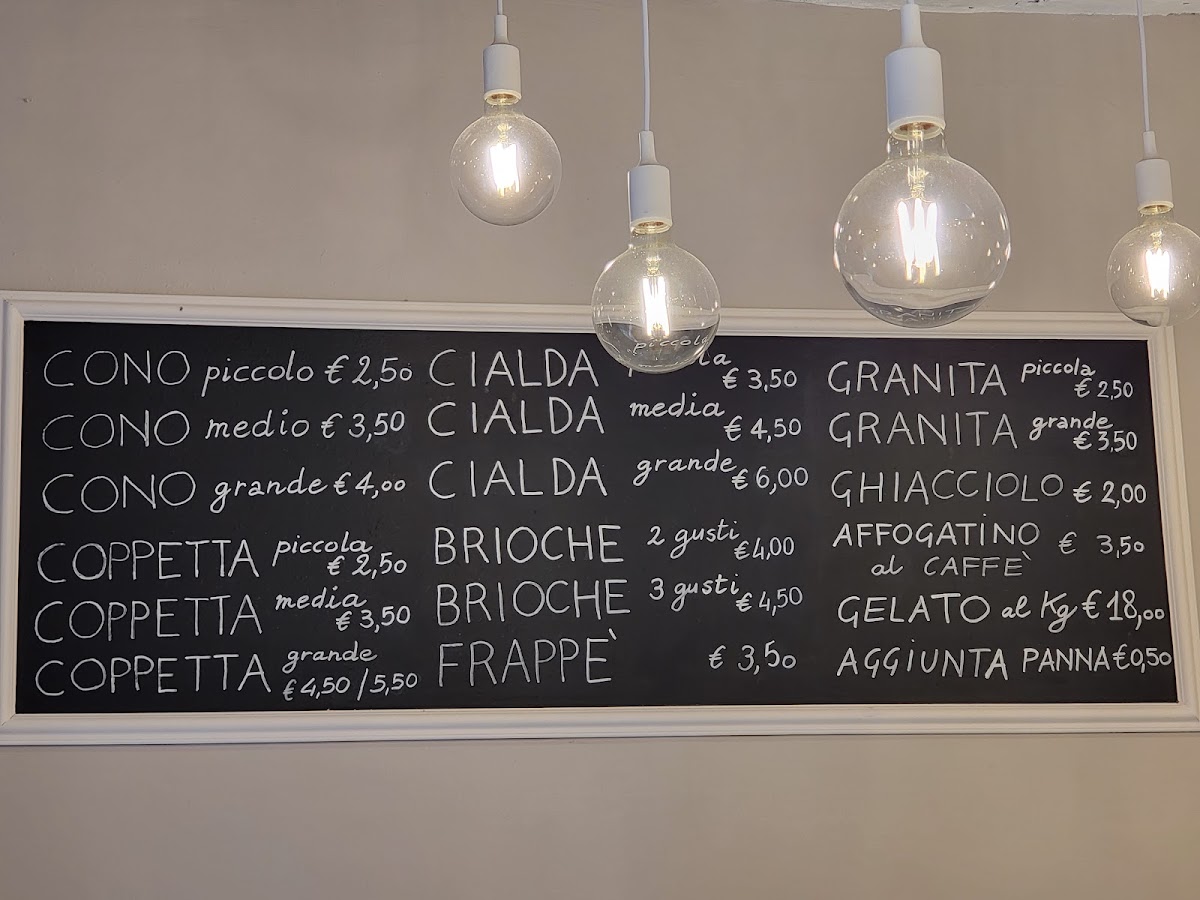 CONO piccolo € 2,50
CONO medio € 3,50
CONO grande € 4,00
COPPETTA piccola € 2,50
COPPETTA media € 3,50
COPPETTA grande € 4,50 / 5,50
CIALDA piccola € 3,50
CIALDA media € 4,50
CIALDA grande € 6,00
BRIOCHE 2 gusti € 4,00
BRIOCHE 3 gusti € 4,50
FRAPPÈ € 3,50
GRANITA piccola € 2,50
GRANITA grande € 3,50
GHIACCIOLO € 2,00
AFFOGATINO € 3,50
al CAFFÈ
GELATO al Kg € 18,00
AGGIUNTA PANNA €0,50